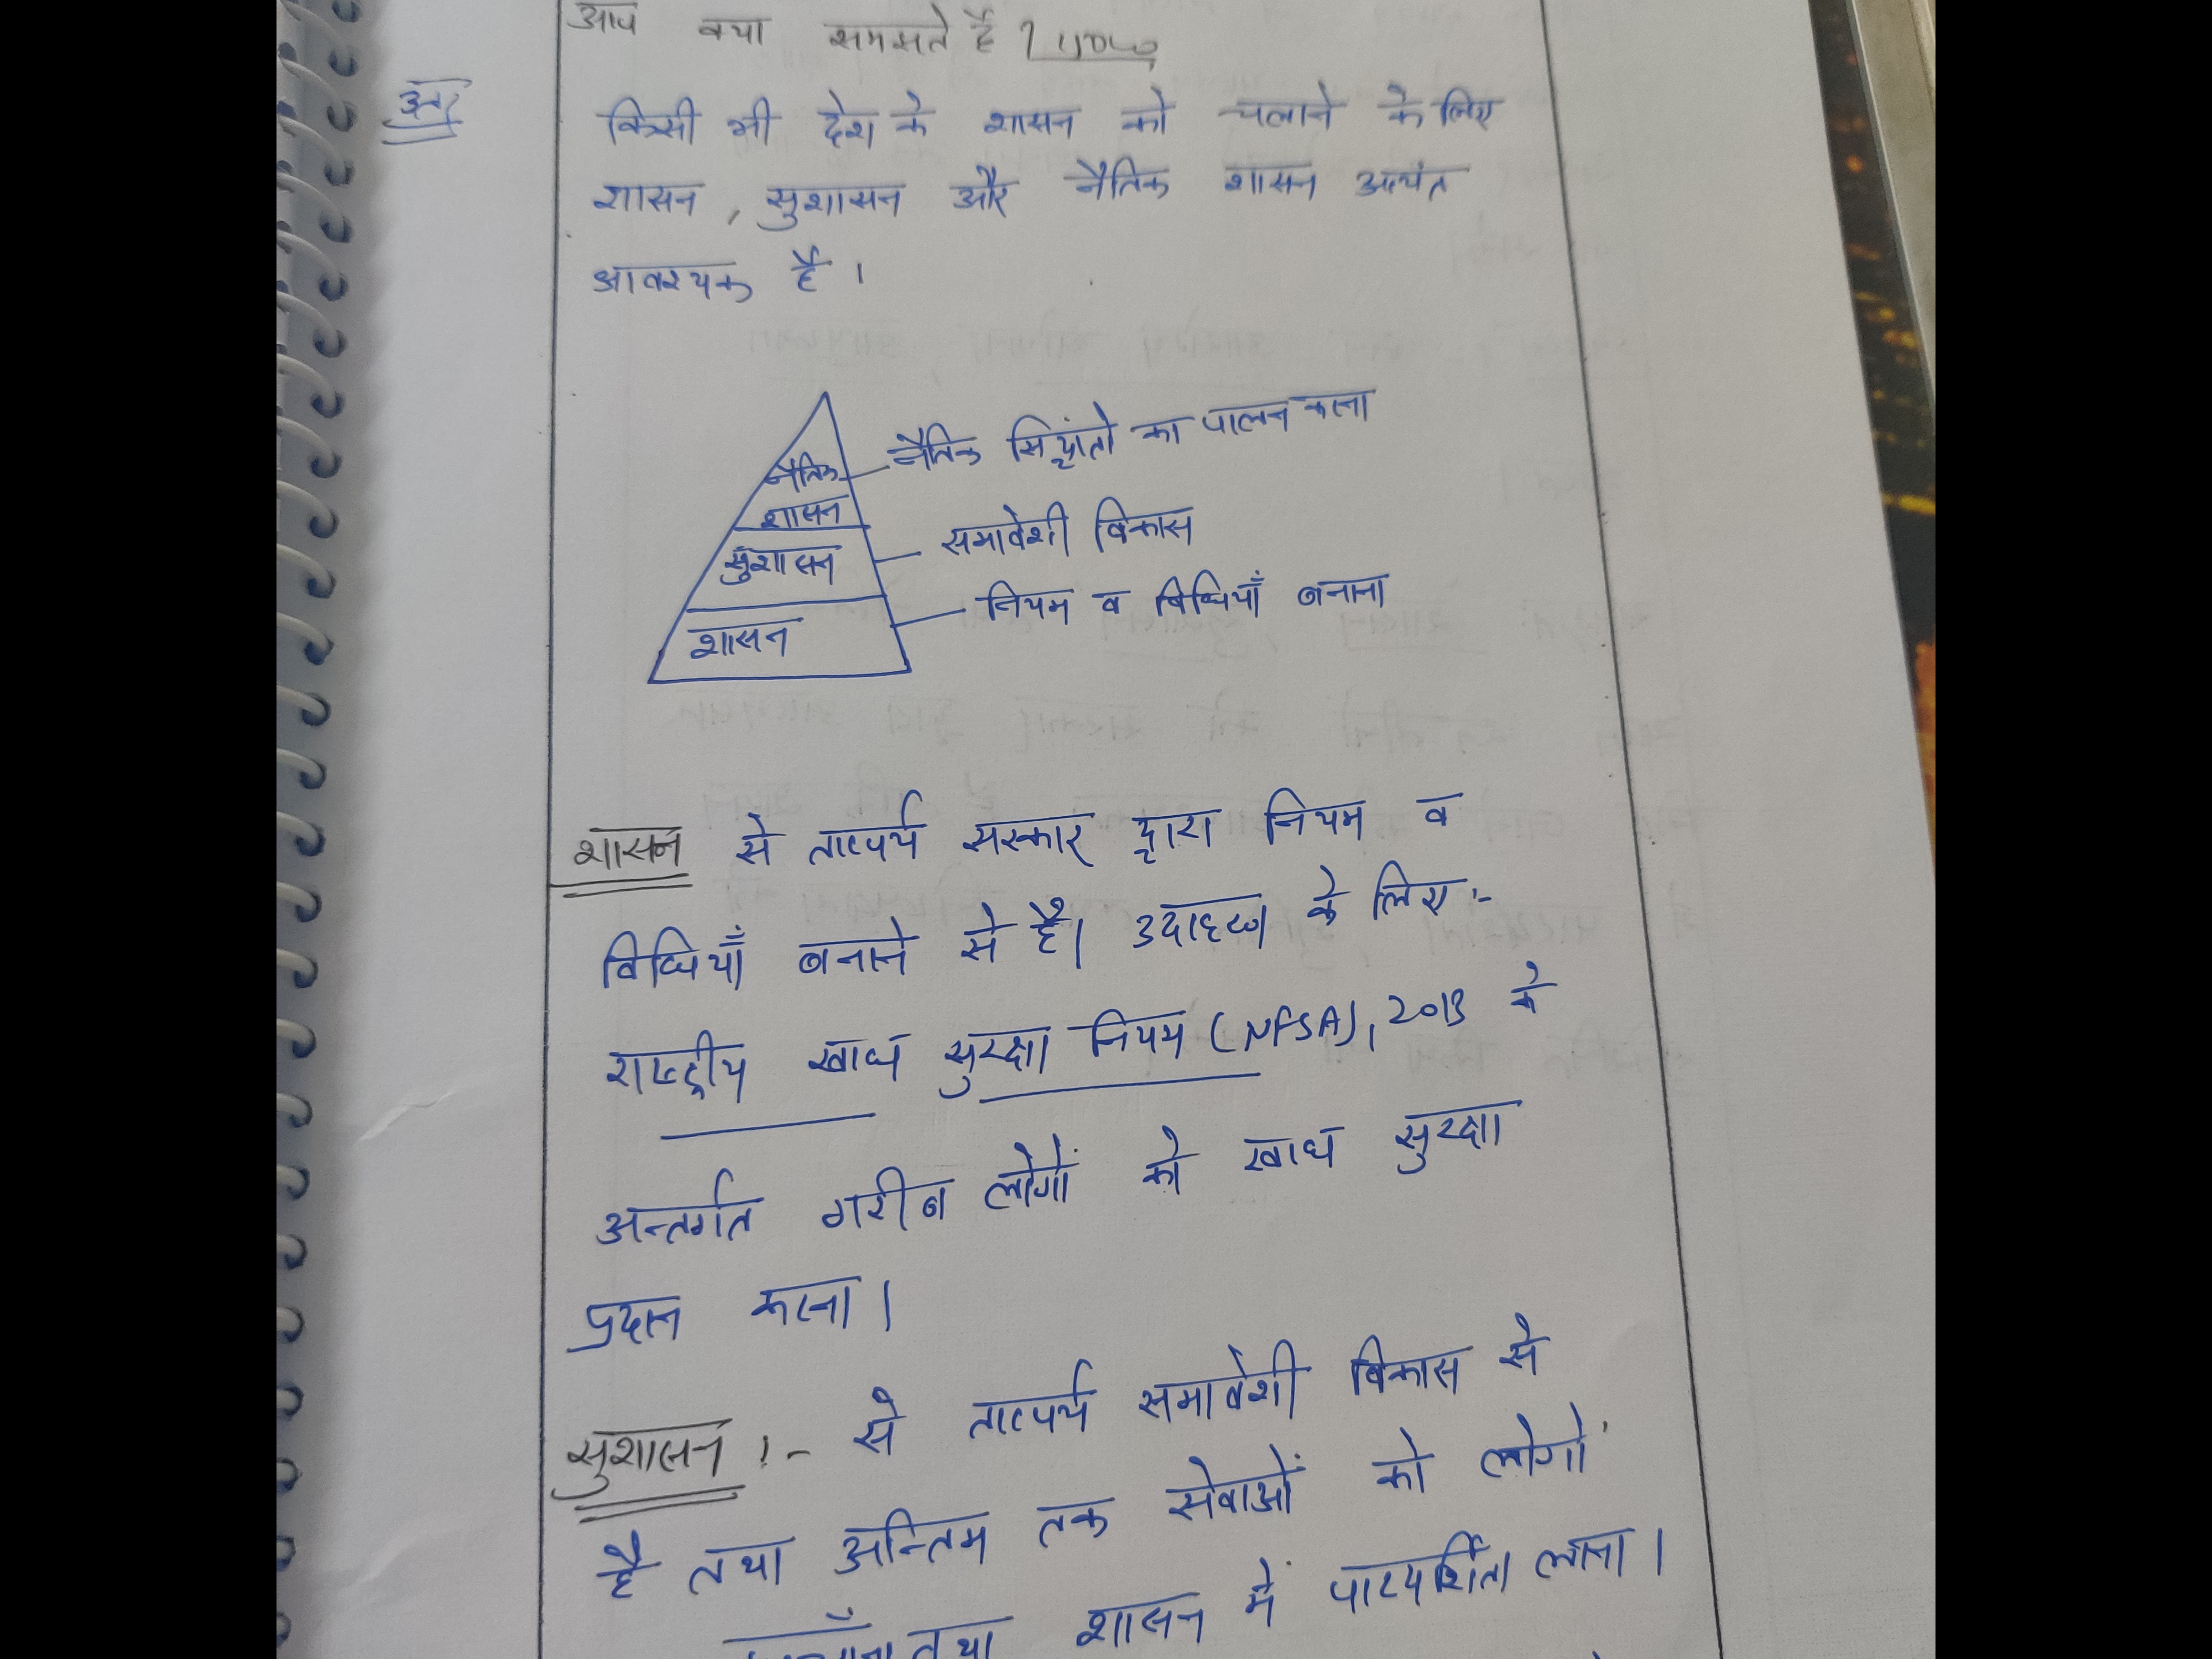 आप क्या समझते है ?
उत्तर
किसी भी देश के शासन को चलाने के लिए
शासन, सुशासन और नैतिक शासन अत्यंत
आवश्यक है ।
नैतिक शासन — नैतिक सिद्धांतो का पालन करना
सुशासन — समावेशी विकास
शासन — नियम व विधियाँ बनाना
शासन से तात्पर्य सरकार द्वारा नियम व
विधियाँ बनाने से है। उदाहरण के लिए :-
राष्ट्रीय खाद्य सुरक्षा नियम (NFSA), 2013 के
अन्तर्गत गरीब लोगों को खाद्य सुरक्षा
प्रदान करना ।
सुशासन :- से तात्पर्य समावेशी विकास से
है तथा अन्तिम तक सेवाओं को लोगों
तथा शासन में पारदर्शिता लाना ।